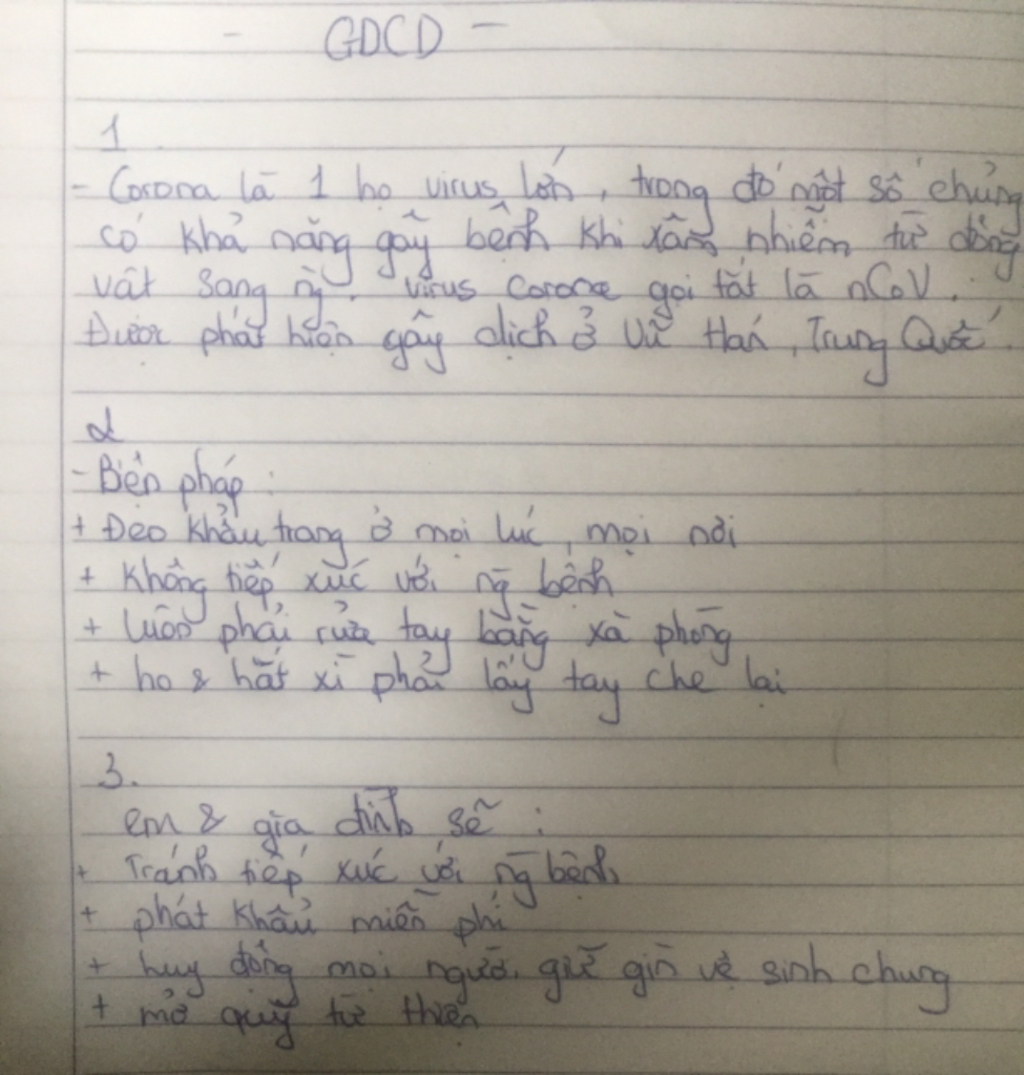 - GDCD -
1
- Corona là 1 họ virus lớn, trong đó một số chủng
có khả năng gây bệnh khi xâm nhiễm từ động
vật sang ng̀. Virus Corona gọi tắt là nCoV.
Được phát hiện gây dịch ở Vũ Hán, Trung Quốc.
2
- Biện pháp:
+ Đeo khẩu trang ở mọi lúc, mọi nơi
+ Không tiếp xúc với ng̀ bệnh
+ luôn phải rửa tay bằng xà phòng
+ ho & hắt xì phải lấy tay che lại
3.
em & gia đình sẽ :
+ Tránh tiếp xúc với ng̀ bệnh
+ phát khẩu miễn phí
+ huy động mọi người giữ gìn vệ sinh chung
+ mở quỹ từ thiện